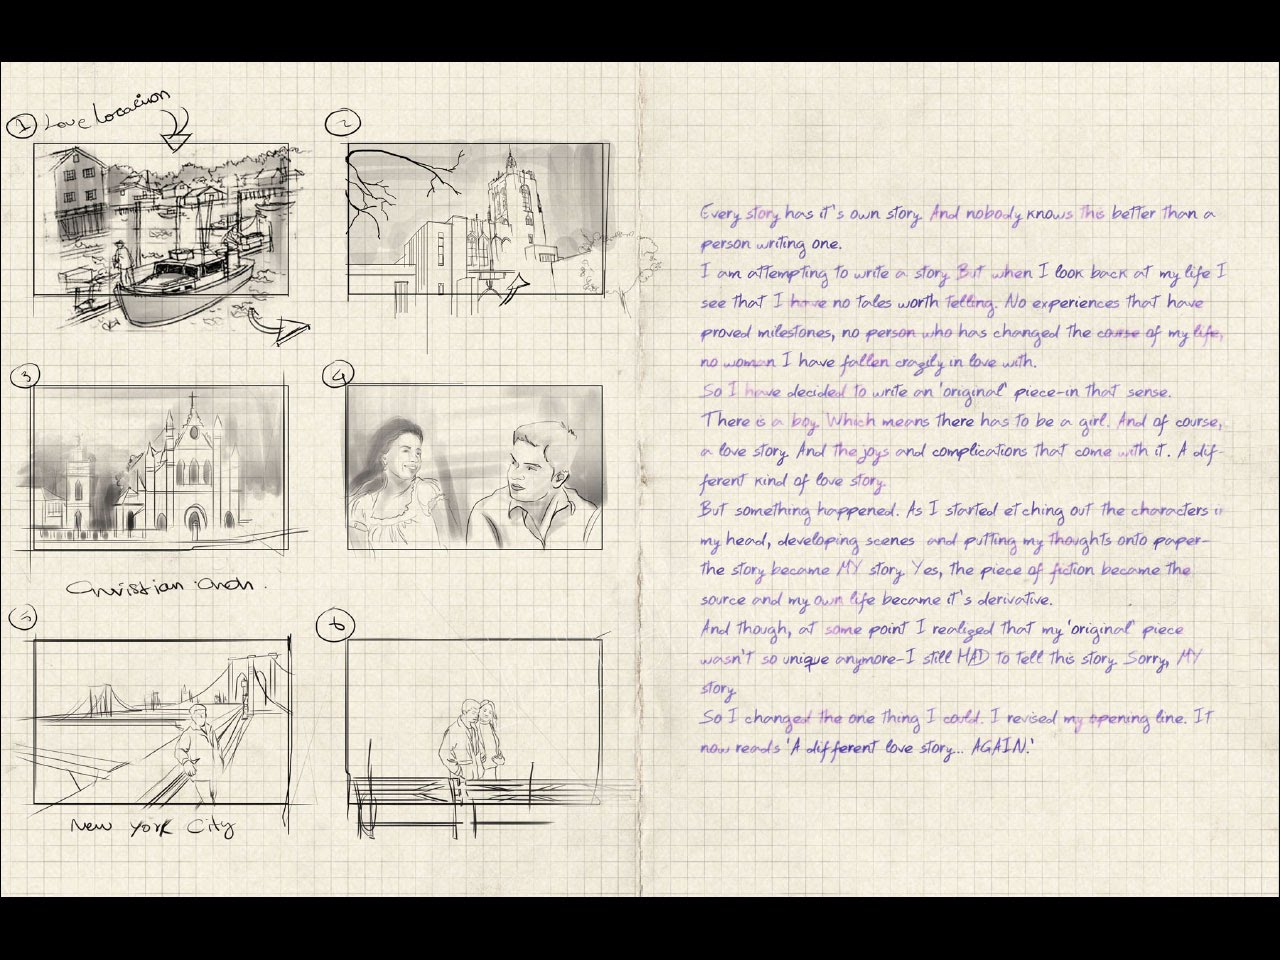 1 Love Location
2
3
4
Christian
5
6
New York City
Every story has it's own story. And nobody knows this better than a
person writing one.
I am attempting to write a story. But when I look back at my life I
see that I have no tales worth telling. No experiences that have
proved milestones, no person who has changed the course of my life,
no woman I have fallen crazily in love with.
So I have decided to write an 'original' piece-in that sense.
There is a boy. Which means there has to be a girl. And of course,
a love story. And the joys and complications that come with it. A dif-
ferent kind of love story.
But something happened. As I started etching out the characters in
my head, developing scenes and putting my thoughts onto paper-
the story became MY story. Yes, the piece of fiction became the
source and my own life became it's derivative.
And though, at some point I realized that my 'original' piece
wasn't so unique anymore-I still HAD to tell this story. Sorry, MY
story.
So I changed the one thing I could. I revised my opening line. It
now reads 'A different love story... AGAIN.'